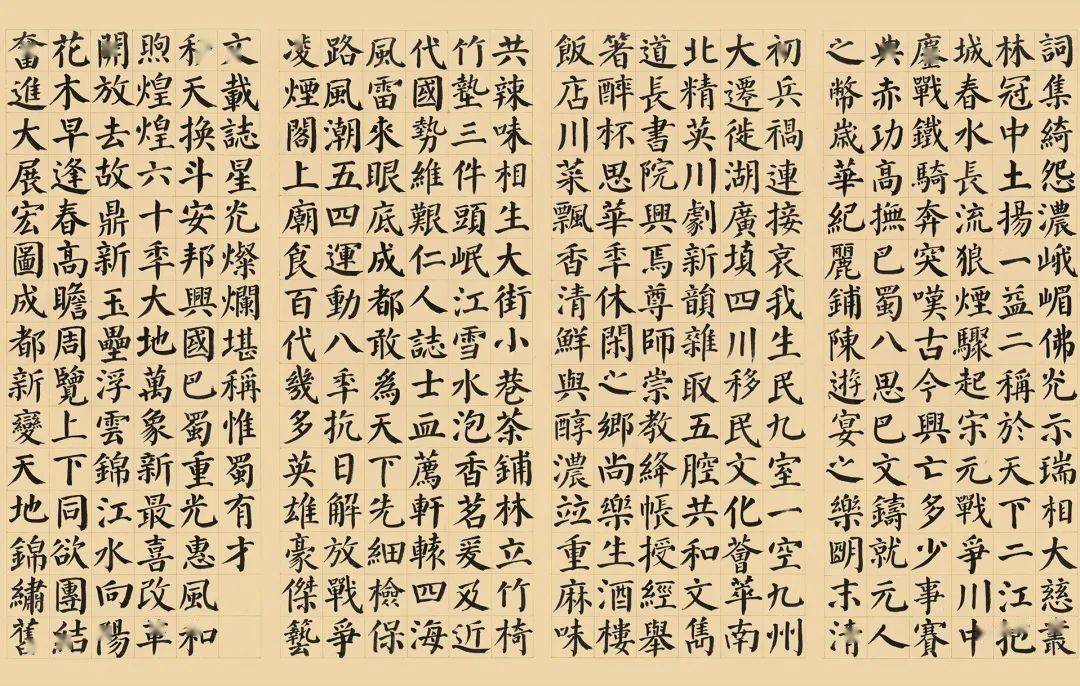 詞集綺怨濃峨嵋佛光示瑞相大慈叢
林冠中土揚一益二稱於天下二江抱
城春水長流狼煙驟起宋元戰爭川中
鏖戰鐵騎奔突嘆古今興亡多少事賽
典赤功高撫巴蜀八思巴文鑄就元人
之幣歲華紀麗鋪陳遊宴之樂明末清
初兵禍連接哀我生民九室一空九州
大遷徙湖廣填四川移民文化薈萃南
北精英川劇新韻雜取五腔共和文雋
道長書院興焉尊師崇教絳帳授經舉
箸醉杯思華年休閑之鄉尚樂生酒樓
飯店川菜飄香清鮮與醇濃竝重麻味
共辣味相生大街小巷茶鋪林立竹椅
竹墊三件頭岷江雪水泡香茗爰及近
代國勢維艱仁人誌士血薦軒轅四海
風雷來眼底成都敢為天下先細檢保
路風潮五四運動八年抗日解放戰爭
凌煙閣上廟食百代幾多英雄豪傑藝
文載誌星光燦爛堪稱惟蜀有才
天換斗安邦興國巴蜀重光惠風和
煦煌煌六十年大地萬象新最喜改革
開放去故鼎新玉壘浮雲錦江水向陽
花木早逢春高瞻周覽上下同欲團結
奮進大展宏圖成都新變天地錦繡舊